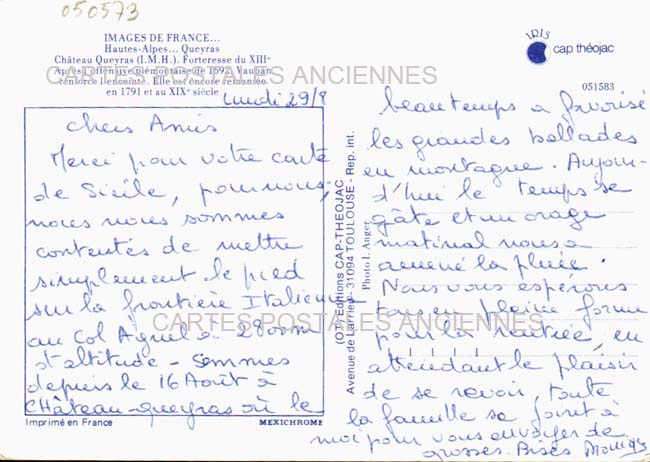 050573
IMAGES DE FRANCE...
Hautes-Alpes... Queyras
Château Queyras (I.M.H.). Forteresse du XIIIe
Après l'offensive piémontaise de 1692, Vauban
renforce l'enceinte. Elle est encore remaniée
en 1791 et au XIXe siècle
CARTES POSTALES ANCIENNES
IRIS
cap théojac
051583
lundi 29/8
chers Amis
Merci pour votre carte
de Sicile, pour nous,
nous nous sommes
contentés de mettre
simplement le pied
sur la frontière Italienne
au Col Agnel à 2800m
d'altitude - Sommes
depuis le 16 Août à
CHâteau-queyras où le
beau temps a favorisé
les grandes ballades
en montagne. Aujour-
d'hui le temps se
gâte et un orage
matinal nous a
amené la pluie.
Nous vous espérons
tous en pleine forme
pour la rentrée, en
attendant le plaisir
de se revoir, toute
la famille se joint à
moi pour vous envoyer de
grosses Bises Monique
Imprimé en France
MEXICHROME
(O.T.) Editions CAP-THEOJAC
Avenue de Larrieu - 31094 TOULOUSE - Rep. int.
Photo I. Anger
CARTES POSTALES ANCIENNES